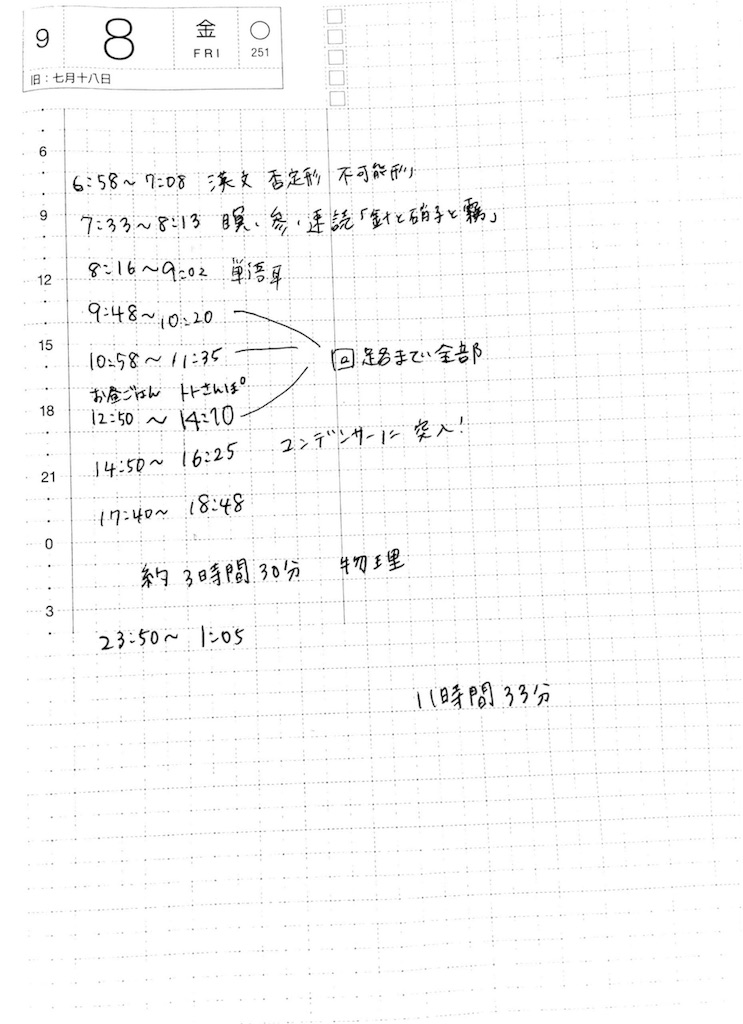 9 8 金 FRI 251
旧：七月十八日
6
6:58～7:08 漢文 否定形 不可能形
9
7:33～8:13 瞑・参・速読「針と硝子と霧」
8:16～9:02 単語耳
12
9:48～10:20
15
10:58～11:35 回路まで全部
お昼ごはん トトさんぽ
18
12:50～14:10
14:50～16:25 コンデンサーに突入！
21
17:40～18:48
0
約3時間30分 物理
3
23:50～1:05
11時間33分